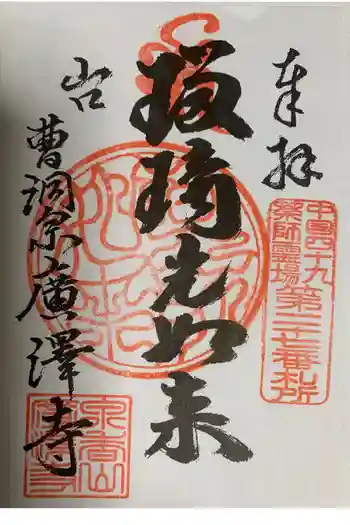 奉拝
中國四十九
薬師霊場第二七番札所
瑠璃光如来
山口
曹洞宗廣澤寺
泉香山
廣澤寺